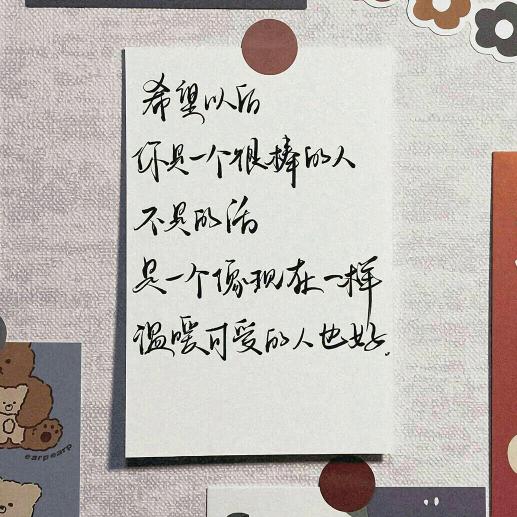 希望以后
你是一个很棒的人
不是的话
是一个像现在一样
温暖可爱的人也好.
earpearp